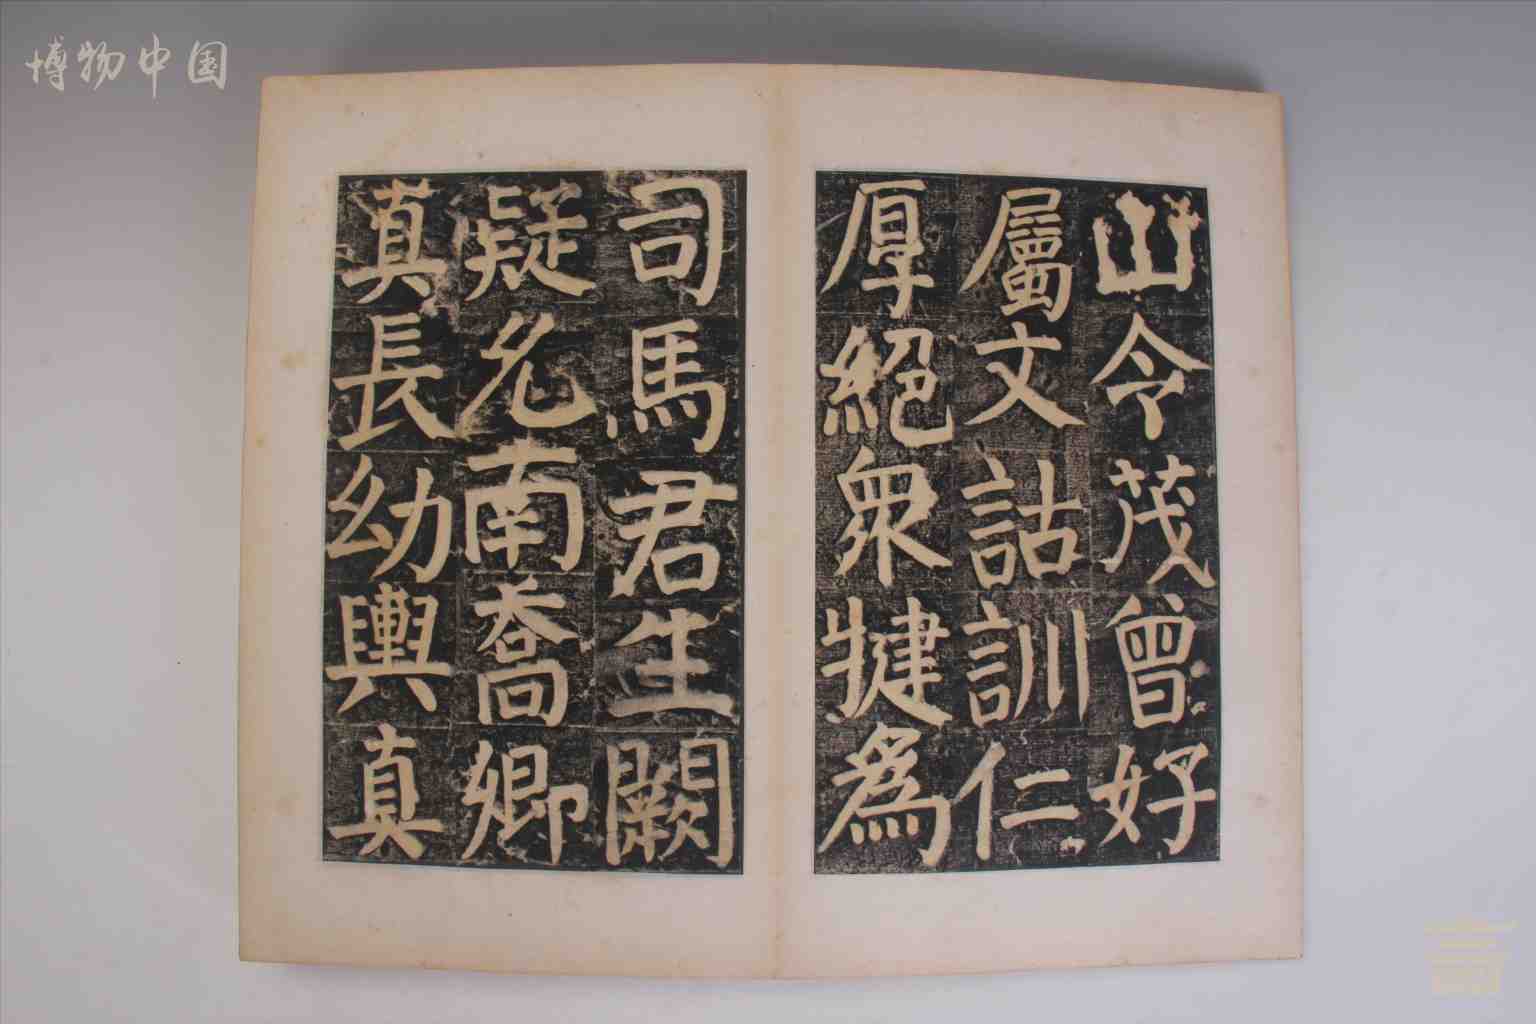 博物中国
山令茂曾好
屬文詁訓仁
厚絕衆犍為
司馬君生闕
疑允南喬卿
真長幼輿真